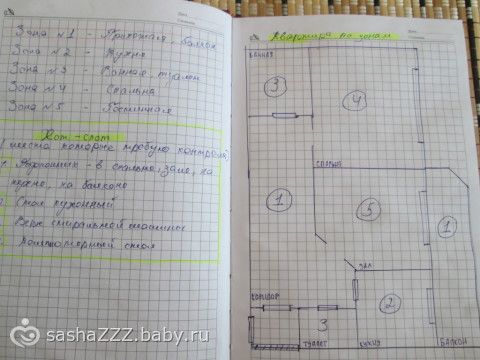 Зона №1 - Прихожая, балкон
Зона №2 - Кухня
Зона №3 - Ванная, туалет
Зона №4 - Спальня
Зона №5 - Гостинная
Хот-спот
(места которые требуют контроля)
Подоконник - в спальне, зале, на
кухне, на балконе
Стол кухонный
Верх стиральной машины
Компьютерный стол
Квартира по зонам
ВАННАЯ
3
4
СПАЛЬНЯ
1
5
1
ЗАЛ
КОРИДОР
2
3
ТУАЛЕТ
КУХНЯ
БАЛКОН
sashaZZZ.baby.ru